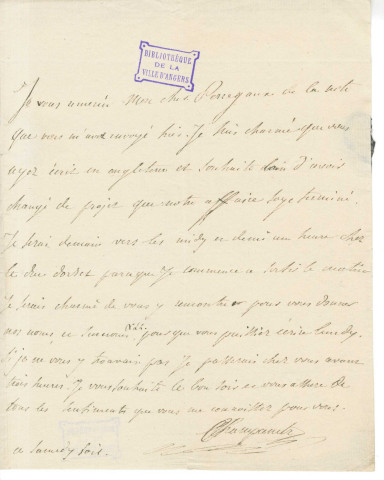 BIBLIOTHÈQUE
DE LA
VILLE D'ANGERS
Je vous remercie Mon cher Perregaux de la note
que vous m'avez envoyé hier. Je suis charmé que vous
ayez écrit en angleterre et souhaite loin d'avoir
changé de projet que notre affaire soye terminé.
Je serai demain vers les midy et demi une heure chez
le duc dorset parceque Je commence a sortir le matin
Je serais charmé de vous y rencontrer pour vous donner
nos noms, et surnoms pour que vous puissiez écrire lundy.
Si je ne vous y trouvais pas Je passerai chez vous avant
trois heures. Je vous souhaite le bon soir et vous assure de
tous les sentiments que vous me connaissez pour vous.
ce samedy soir.